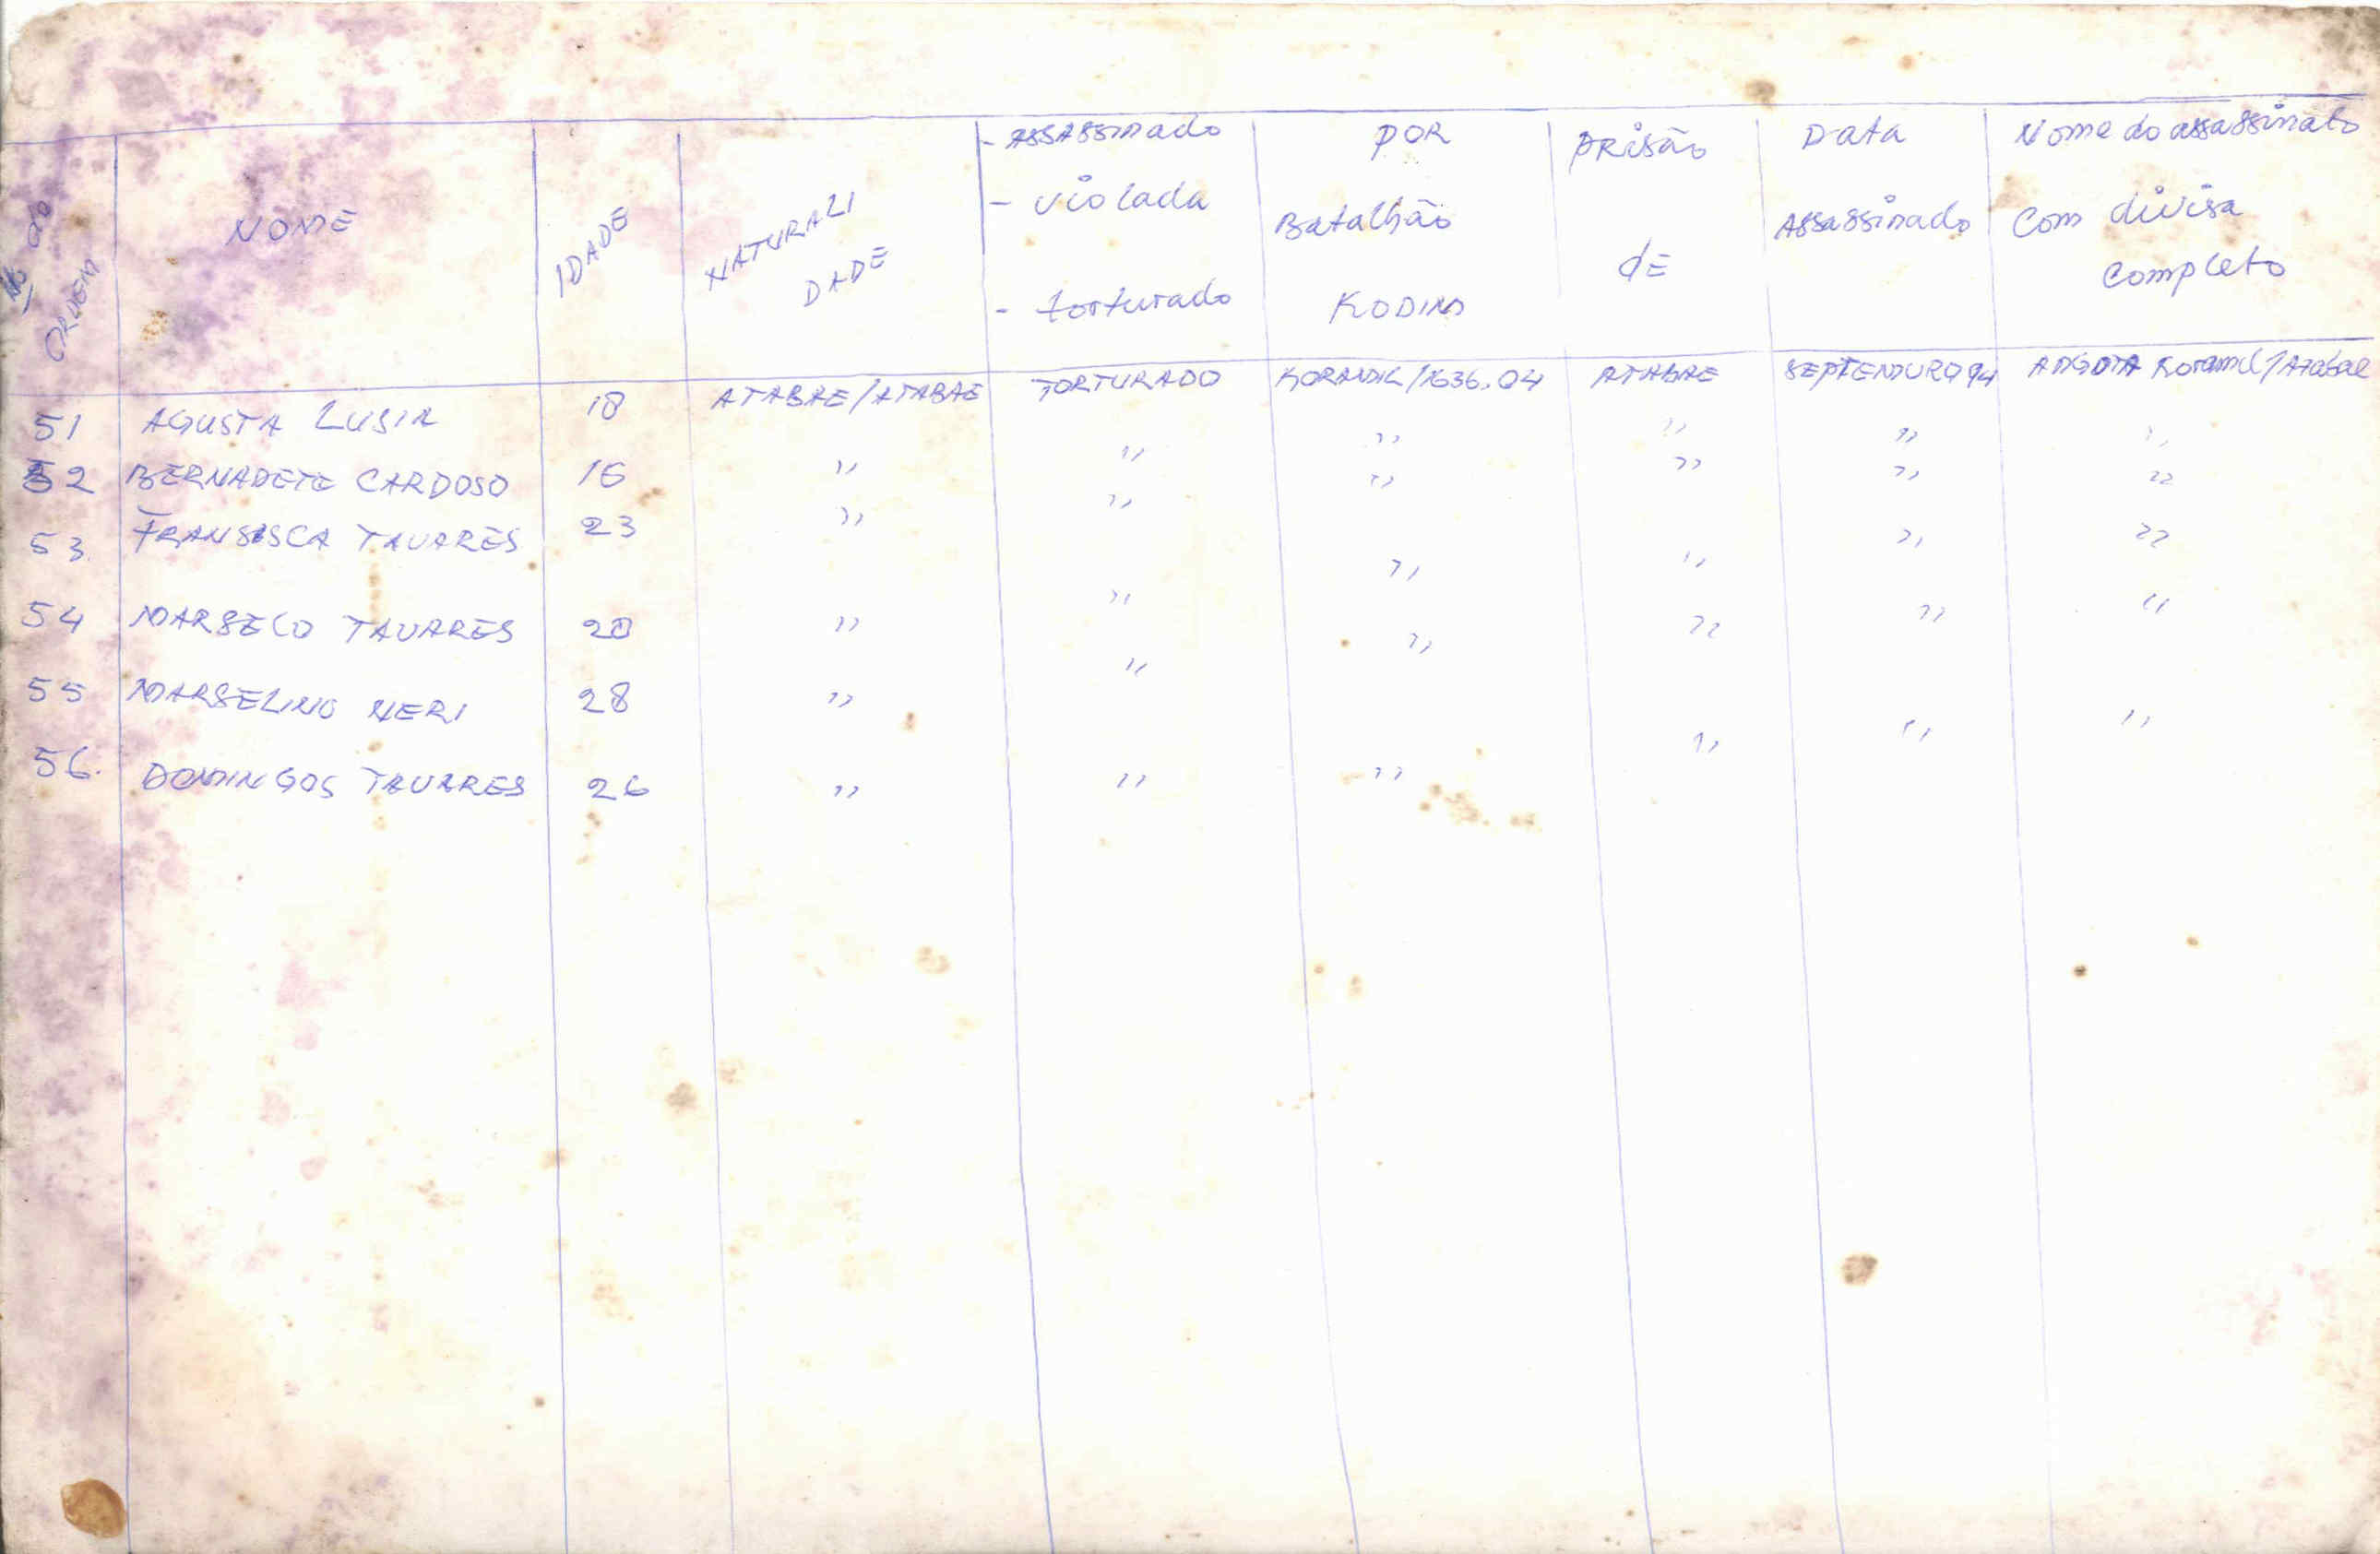 Nº do ORDEM | NOME | IDADE | NATURALIDADE | - ASSASSINADO - violada - torturado | POR Batalhão KODIM | PRISÃO DE | Data Assassinado | Nome do assassinato com divisa completo
51 | AGUSTA LUSIA | 18 | ATABAE/ATABAE | TORTURADO | KORAMIL/1636.04 | ATABAE | SEPTEMBURO 94 | ANGOTA Koramil/Atabae
52 | BERNADETE CARDOSO | 16 | ,, | ,, | ,, | ,, | ,, | ,,
53. | FRANSISCA TAVARES | 23 | ,, | ,, | ,, | ,, | ,, | ,,
54 | MARSELO TAVARES | 20 | ,, | ,, | ,, | ,, | ,, | ,,
55 | MARSELINO NERI | 28 | ,, | ,, | ,, | ,, | ,, | ,,
56. | DOMINGOS TAVARES | 26 | ,, | ,, | ,, | ,, | ,, | ,,